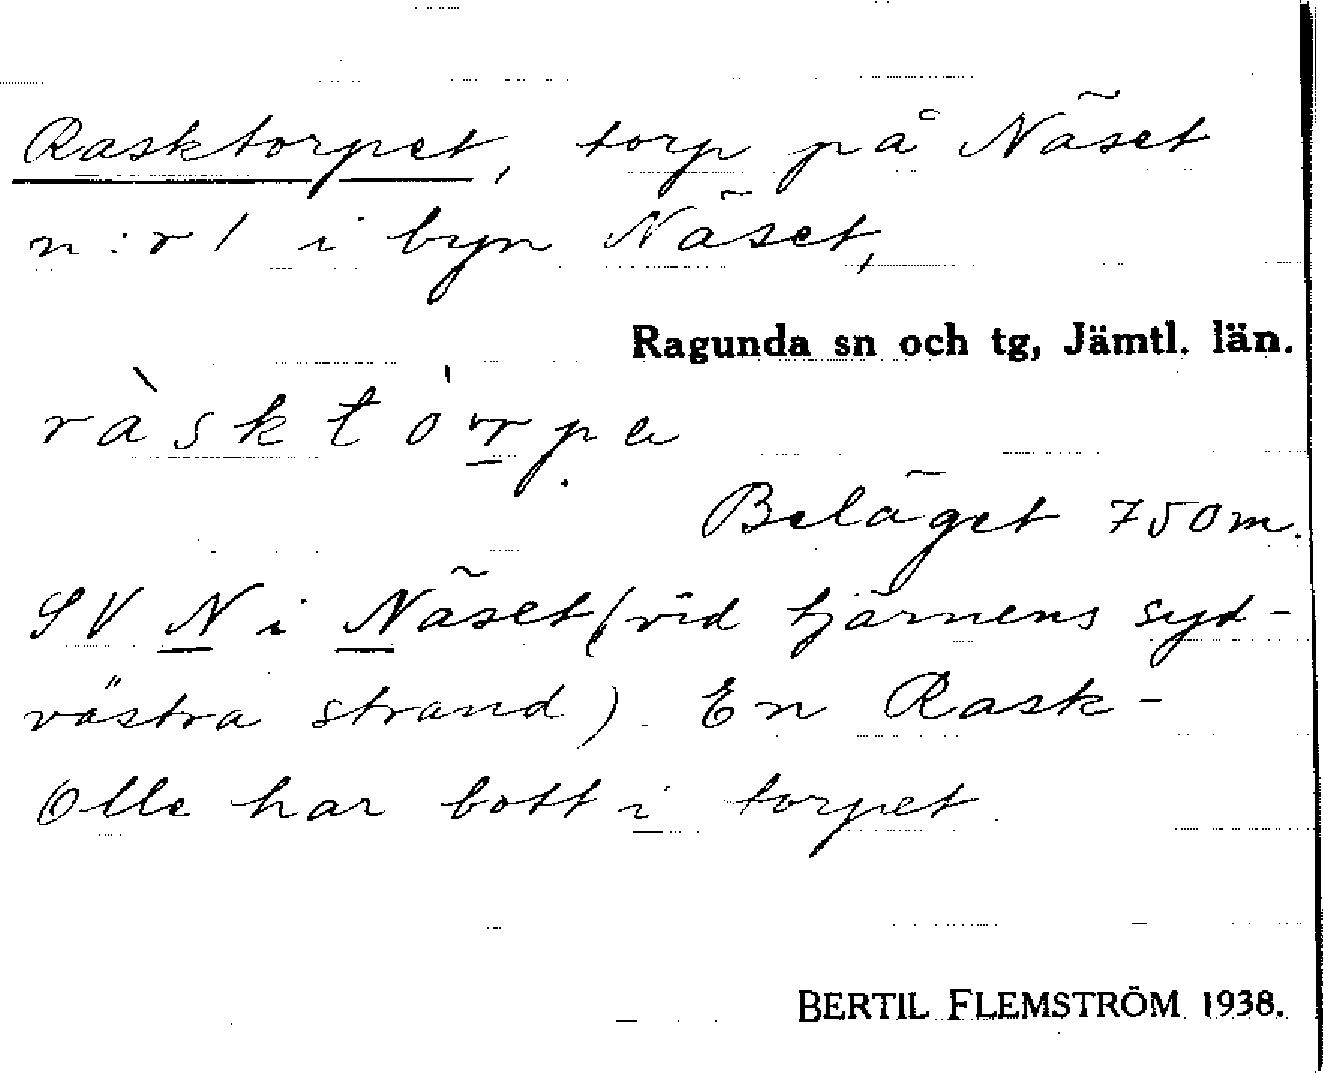 Rasktorpet, torp på Näset
n:r 1 i byn Näset,
Ragunda sn och tg, Jämtl. län.
ràsktórpa
Beläget 750 m.
SV N i Näset (vid tjärnens syd-
västra strand). En Rask-
Olle har bott i torpet.
BERTIL FLEMSTRÖM 1938.